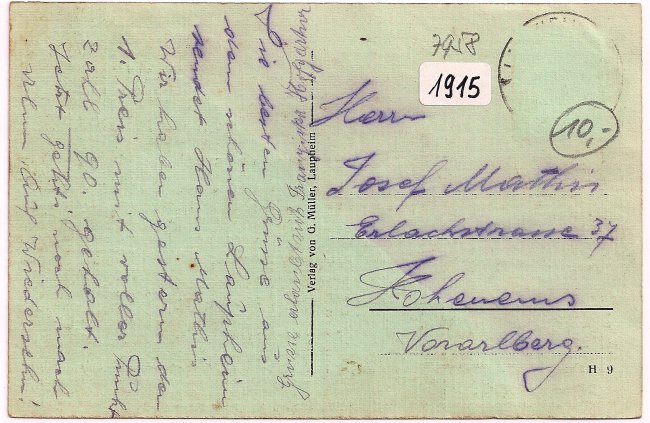 Die besten Grüsse aus
dem schönen Laupheim
sendet Hans Mathis
Wir haben gestern den
1. Preis mit voller Punkt
zahl 90. geholt
Jetzt gehts noch nach
Ulm. Auf Wiedersehn!
Verlag von G. Müller, Laupheim
7458
1915
10,-
Herrn
Josef Mathis
Erlachstrasse 37
Hohenems
Vorarlberg.
H 9